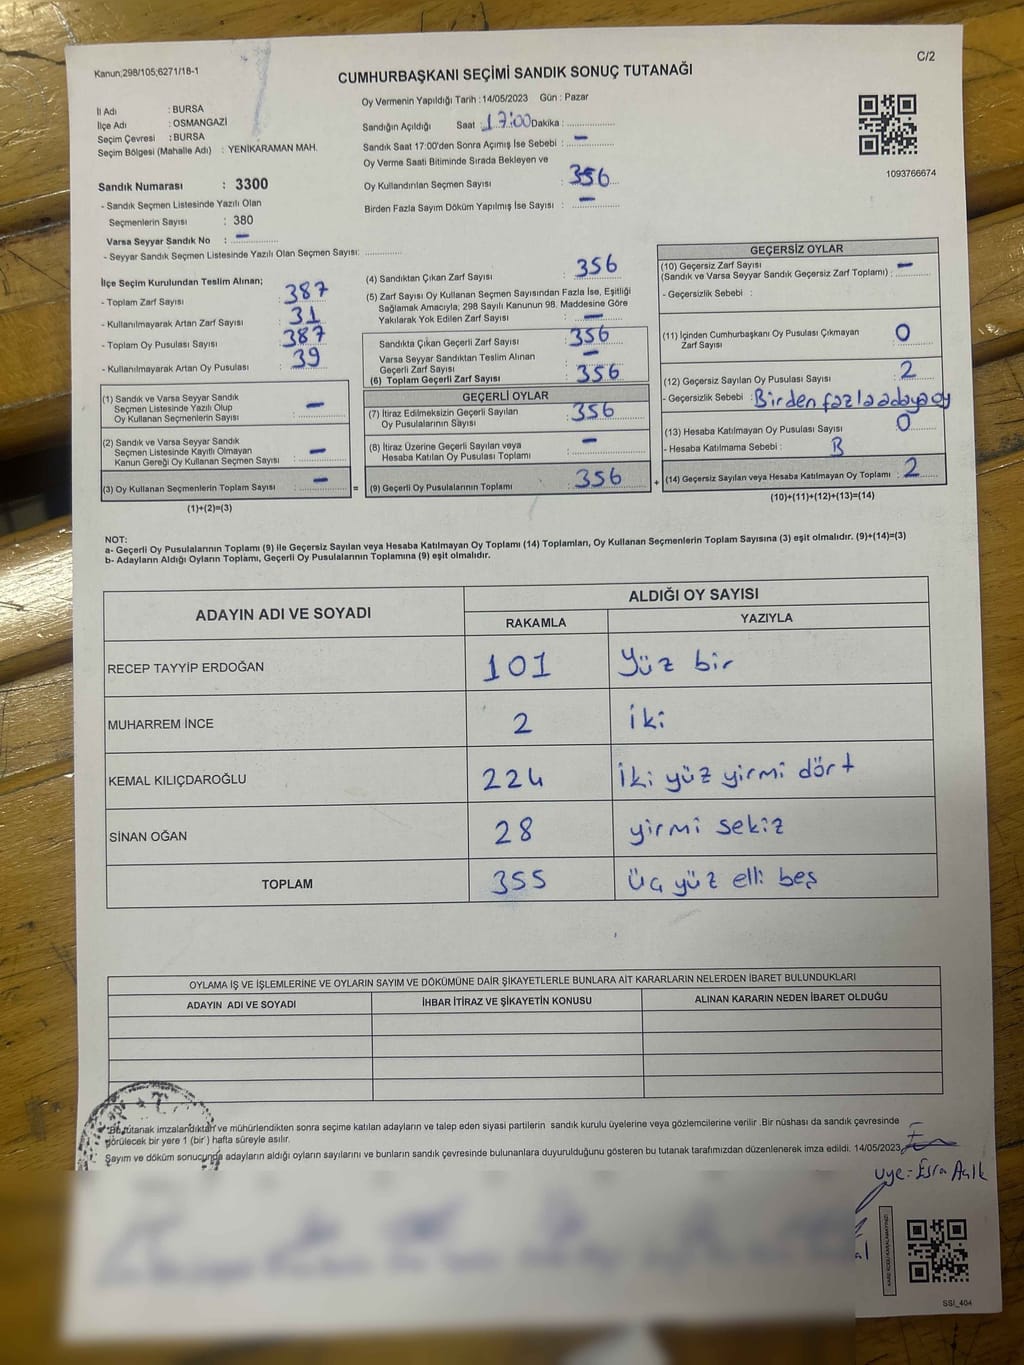 Kanun;298/105;6271/18-1
C/2
CUMHURBAŞKANI SEÇİMİ SANDIK SONUÇ TUTANAĞI
İl Adı : BURSA
İlçe Adı : OSMANGAZİ
Seçim Çevresi : BURSA
Seçim Bölgesi (Mahalle Adı) : YENİKARAMAN MAH.
Sandık Numarası : 3300
- Sandık Seçmen Listesinde Yazılı Olan
Seçmenlerin Sayısı : 380
Varsa Seyyar Sandık No : –
- Seyyar Sandık Seçmen Listesinde Yazılı Olan Seçmen Sayısı: ................
Oy Vermenin Yapıldığı Tarih : 14/05/2023 Gün : Pazar
Sandığın Açıldığı Saat : 17:00 Dakika : ................
Sandık Saat 17:00'den Sonra Açımış İse Sebebi : –
Oy Verme Saati Bitiminde Sırada Bekleyen ve
Oy Kullandırılan Seçmen Sayısı : 356
Birden Fazla Sayım Döküm Yapılmış İse Sayısı : –
1093766674
İlçe Seçim Kurulundan Teslim Alınan;
- Toplam Zarf Sayısı : 387
- Kullanılmayarak Artan Zarf Sayısı : 31
- Toplam Oy Pusulası Sayısı : 387
- Kullanılmayarak Artan Oy Pusulası : 39
(1) Sandık ve Varsa Seyyar Sandık
Seçmen Listesinde Yazılı Olup
Oy Kullanan Seçmenlerin Sayısı : –
(2) Sandık ve Varsa Seyyar Sandık
Seçmen Listesinde Kayıtlı Olmayan
Kanun Gereği Oy Kullanan Seçmen Sayısı : –
(3) Oy Kullanan Seçmenlerin Toplam Sayısı : –
(1)+(2)=(3)
(4) Sandıktan Çıkan Zarf Sayısı : 356
(5) Zarf Sayısı Oy Kullanan Seçmen Sayısından Fazla İse, Eşitliği
Sağlamak Amacıyla; 298 Sayılı Kanunun 98. Maddesine Göre
Yakılarak Yok Edilen Zarf Sayısı : –
Sandıkta Çıkan Geçerli Zarf Sayısı : 356
Varsa Seyyar Sandıktan Teslim Alınan
Geçerli Zarf Sayısı : –
(6) Toplam Geçerli Zarf Sayısı : 356
GEÇERLİ OYLAR
(7) İtiraz Edilmeksizin Geçerli Sayılan
Oy Pusulalarının Sayısı : 356
(8) İtiraz Üzerine Geçerli Sayılan veya
Hesaba Katılan Oy Pusulası Toplamı : –
(9) Geçerli Oy Pusulalarının Toplamı : 356
=
+
GEÇERSİZ OYLAR
(10) Geçersiz Zarf Sayısı
(Sandık ve Varsa Seyyar Sandık Geçersiz Zarf Toplamı) : –
- Geçersizlik Sebebi :
(11) İçinden Cumhurbaşkanı Oy Pusulası Çıkmayan
Zarf Sayısı 0
(12) Geçersiz Sayılan Oy Pusulası Sayısı : 2
- Geçersizlik Sebebi : Birden fazla adaya oy
(13) Hesaba Katılmayan Oy Pusulası Sayısı : 0
- Hesaba Katılmama Sebebi :
(14) Geçersiz Sayılan veya Hesaba Katılmayan Oy Toplamı : 2
(10)+(11)+(12)+(13)=(14)
NOT:
a- Geçerli Oy Pusulalarının Toplamı (9) ile Geçersiz Sayılan veya Hesaba Katılmayan Oy Toplamı (14) Toplamları, Oy Kullanan Seçmenlerin Toplam Sayısına (3) eşit olmalıdır. (9)+(14)=(3)
b- Adayların Aldığı Oyların Toplamı, Geçerli Oy Pusulalarının Toplamına (9) eşit olmalıdır.
ADAYIN ADI VE SOYADI
ALDIĞI OY SAYISI
RAKAMLA YAZIYLA
RECEP TAYYİP ERDOĞAN 101 Yüz bir
MUHARREM İNCE 2 iki
KEMAL KILIÇDAROĞLU 224 iki yüz yirmi dört
SİNAN OĞAN 28 yirmi sekiz
TOPLAM 355 üç yüz elli beş
OYLAMA İŞ VE İŞLEMLERİNE VE OYLARIN SAYIM VE DÖKÜMÜNE DAİR ŞİKAYETLERLE BUNLARA AİT KARARLARIN NELERDEN İBARET BULUNDUKLARI
ADAYIN ADI VE SOYADI İHBAR İTİRAZ VE ŞİKAYETİN KONUSU ALINAN KARARIN NEDEN İBARET OLDUĞU
Bu tutanak imzalandıktan ve mühürlendikten sonra seçime katılan adayların ve talep eden siyasi partilerin sandık kurulu üyelerine veya gözlemcilerine verilir .Bir nüshası da sandık çevresinde
görülecek bir yere 1 (bir ) hafta süreyle asılır.
Sayım ve döküm sonucunda adayların aldığı oyların sayılarını ve bunların sandık çevresinde bulunanlara duyurulduğunu gösteren bu tutanak tarafımızdan düzenlenerek imza edildi. 14/05/2023
üye: Esra Açık
SSI_404